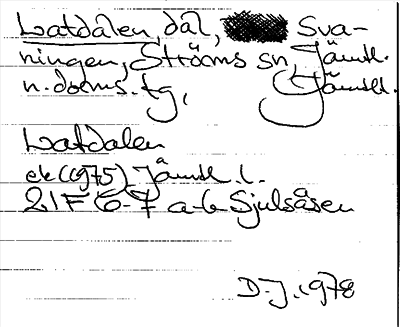 Latdalen, dal, Sva-
ningen, Ströms sn, Jämtl.
n. doms. tg, Jämtl.
Latdalen
ek (1975) Jämtl. l.
21F 6-7 a-b Sjulsåsen
D.J. 1978